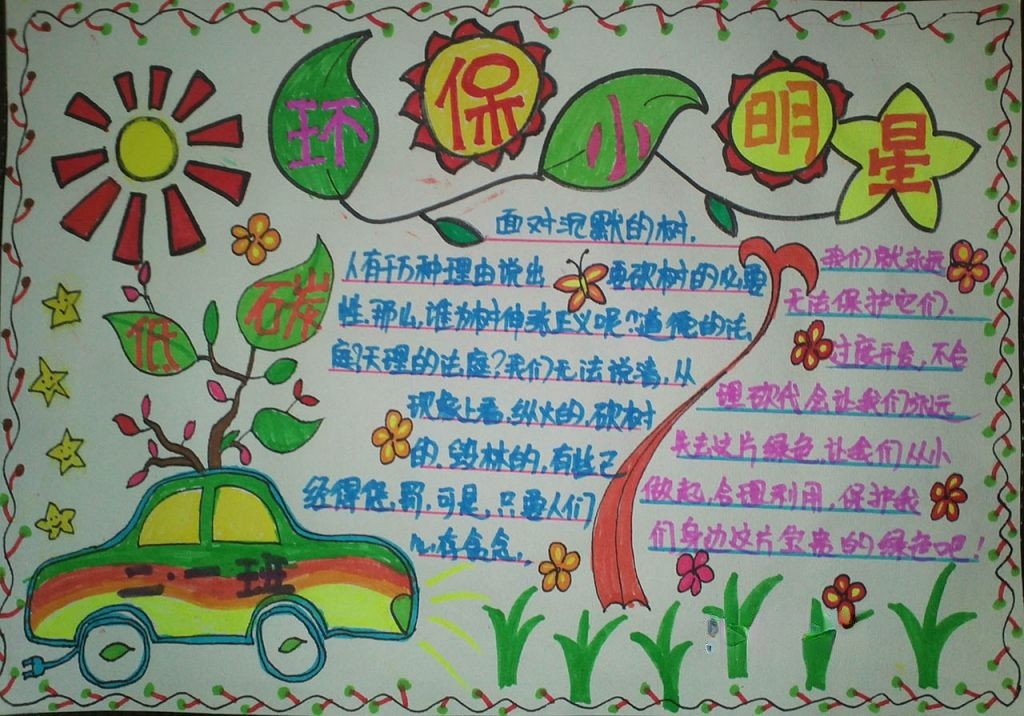 环保小明星
低
石炭
二·一班
面对沉默的树.
人有千万种理由说出 要砍树的必要
性.那么,谁为树伸张正义呢?道德的法
庭?天理的法庭?我们无法说清,从
现象上看,纵火的,砍树
的,毁林的,有些已
经得惩,罚,可是,只要人们
心有贪念,
我们就永远
无法保护它们.
过度开发,不合
理砍伐会让我们永远
失去这片绿色,让我们从小
做起,合理利用,保护我
们身边这片宝贵的绿色吧!